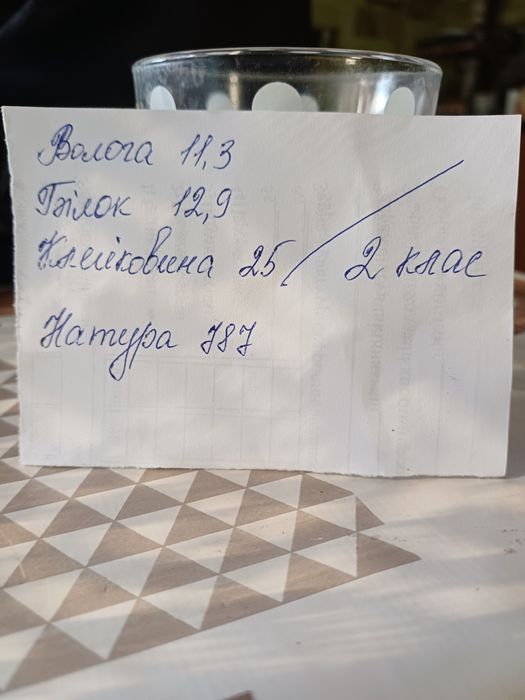 Волога 11,3
Білок 12,9
Клейковина 25 / 2 клас
Натура 787